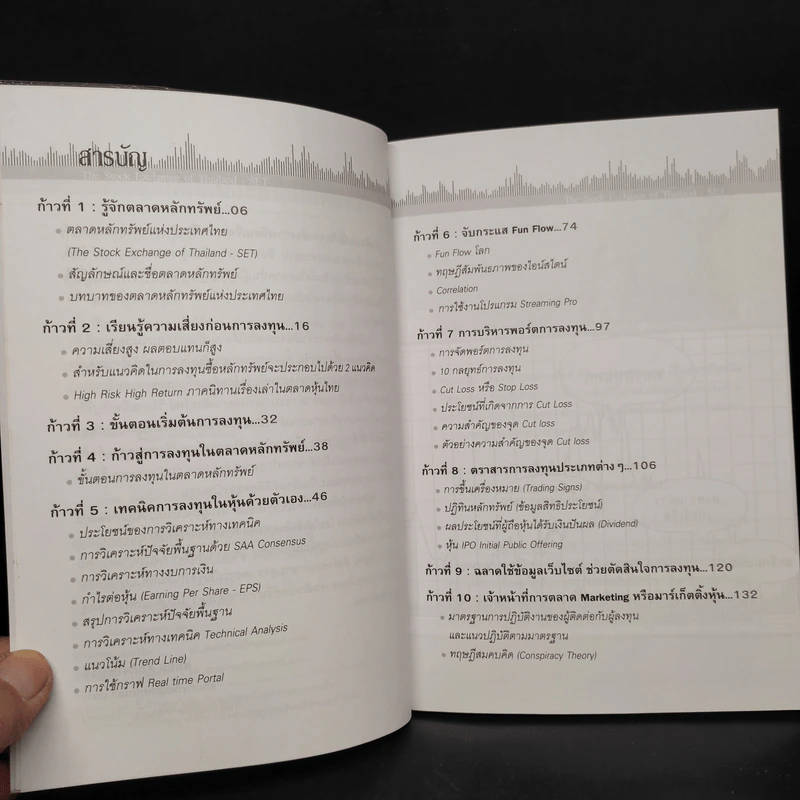 สารบัญ
The Stock Exchange of Thailand - SET
ก้าวที่ 1 : รู้จักตลาดหลักทรัพย์...06
ตลาดหลักทรัพย์แห่งประเทศไทย
(The Stock Exchange of Thailand - SET)
สัญลักษณ์และชื่อตลาดหลักทรัพย์
บทบาทของตลาดหลักทรัพย์แห่งประเทศไทย
ก้าวที่ 2 : เรียนรู้ความเสี่ยงก่อนการลงทุน...16
ความเสี่ยงสูง ผลตอบแทนก็สูง
สำหรับแนวคิดในการลงทุนซื้อหลักทรัพย์จะประกอบไปด้วย 2 แนวคิด
High Risk High Return ภาคนิทานเรื่องเล่าในตลาดหุ้นไทย
ก้าวที่ 3 : ขั้นตอนเริ่มต้นการลงทุน...32
ก้าวที่ 4 : ก้าวสู่การลงทุนในตลาดหลักทรัพย์...38
ขั้นตอนการลงทุนในตลาดหลักทรัพย์
ก้าวที่ 5 : เทคนิคการลงทุนในหุ้นด้วยตัวเอง...46
ประโยชน์ของการวิเคราะห์ทางเทคนิค
การวิเคราะห์ปัจจัยพื้นฐานด้วย SAA Consensus
การวิเคราะห์ทางงบการเงิน
กำไรต่อหุ้น (Earning Per Share - EPS)
สรุปการวิเคราะห์ปัจจัยพื้นฐาน
การวิเคราะห์ทางเทคนิค Technical Analysis
แนวโน้ม (Trend Line)
การใช้กราฟ Real time Portal
ก้าวที่ 6 : จับกระแส Fun Flow...74
Fun Flow โลก
ทฤษฎีสัมพันธภาพของไอน์สไตน์
Correlation
การใช้งานโปรแกรม Streaming Pro
ก้าวที่ 7 การบริหารพอร์ตการลงทุน...97
การจัดพอร์ตการลงทุน
10 กลยุทธ์การลงทุน
Cut Loss หรือ Stop Loss
ประโยชน์ที่เกิดจากการ Cut Loss
ความสำคัญของจุด Cut loss
ตัวอย่างความสำคัญของจุด Cut loss
ก้าวที่ 8 : ตราสารการลงทุนประเภทต่าง ๆ...106
การขึ้นเครื่องหมาย (Trading Signs)
ปฏิทินหลักทรัพย์ (ข้อมูลสิทธิประโยชน์)
ผลประโยชน์ที่ผู้ถือหุ้นได้รับเงินปันผล (Dividend)
หุ้น IPO Initial Public Offering
ก้าวที่ 9 : ฉลาดใช้ข้อมูลเว็บไซต์ ช่วยตัดสินใจการลงทุน...120
ก้าวที่ 10 : เจ้าหน้าที่การตลาด Marketing หรือมาร์เก็ตติ้งหุ้น...132
มาตรฐานการปฏิบัติงานของผู้ติดต่อกับผู้ลงทุน
และแนวปฏิบัติตามมาตรฐาน
ทฤษฎีสมคบคิด (Conspiracy Theory)